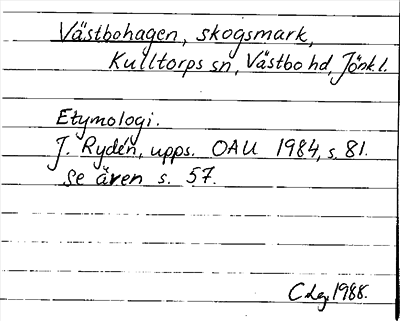 Västbohagen, skogsmark,
Kulltorps sn, Västbo hd, Jönk.l.
Etymologi.
J. Rydén, upps. OAU 1984, s. 81.
Se även s. 57.
1988.